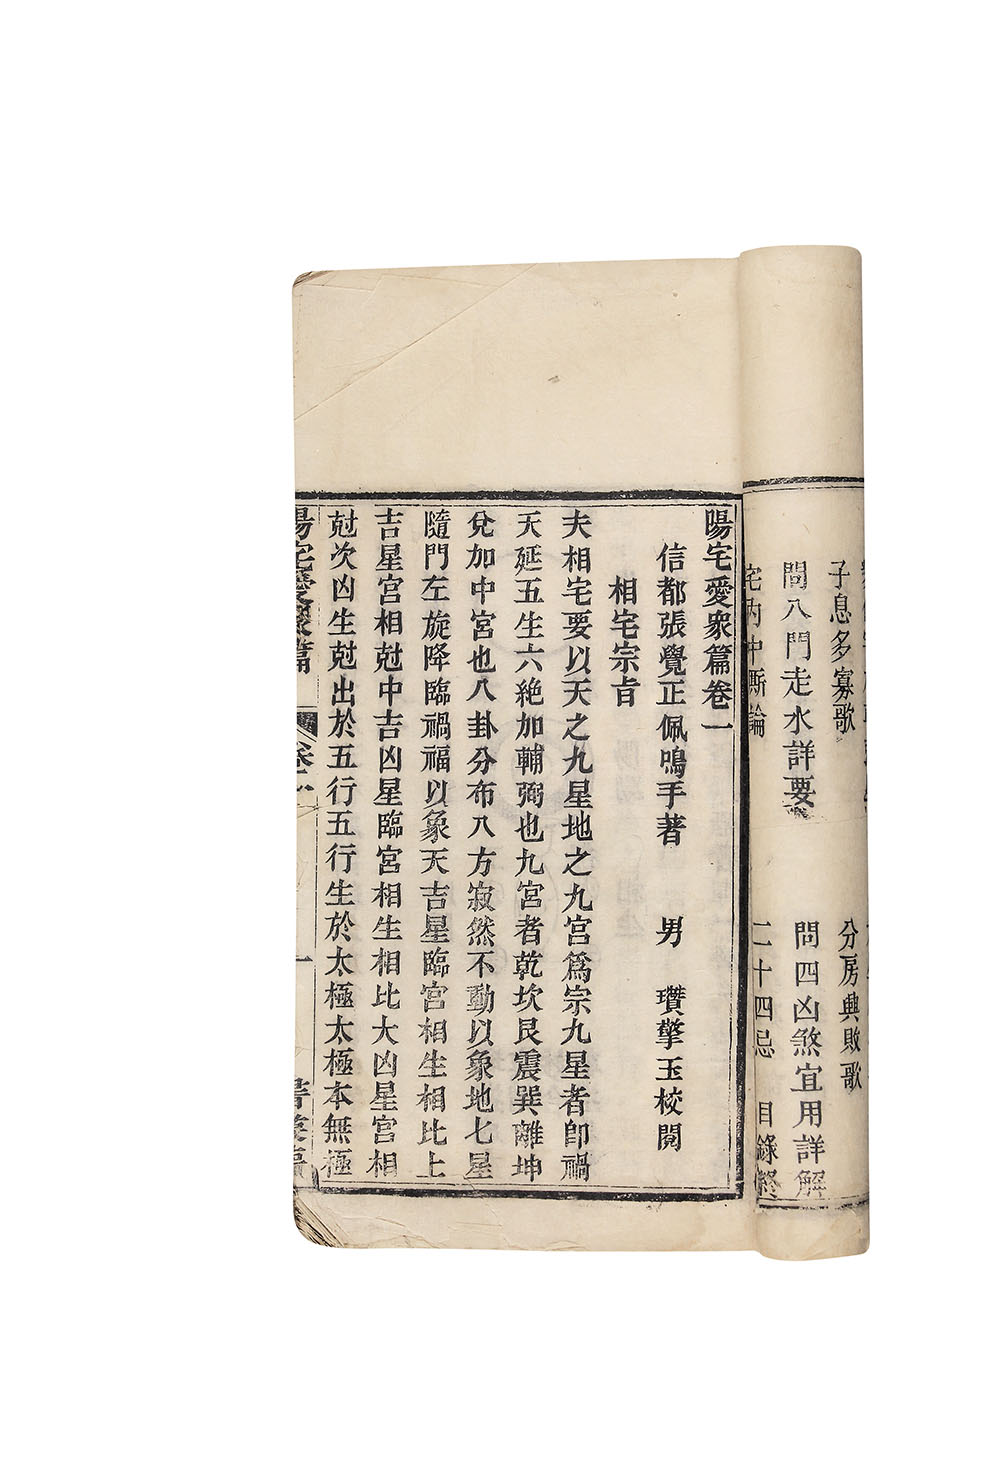 子息多寡歌
分房興敗歌
問八門走水詳要
問四凶煞宜用詳解
宅內中斷論
二十四忌
目錄終
陽宅愛衆篇卷一
信都張覺正佩鳴手著　男　瓚擎玉校閱
相宅宗旨
夫相宅要以天之九星地之九宮爲宗九星者卽禍
天延五生六絕加輔弼也九宮者乾坎艮震巽離坤
兌加中宮也八卦分布八方寂然不動以象地七星
隨門左旋降臨禍福以象天吉星臨宮相生相比上
吉星宮相尅中吉凶星臨宮相生相比大凶星宮相
尅次凶生尅出於五行五行生於太極太極本無極
陽宅愛衆篇
卷一
一